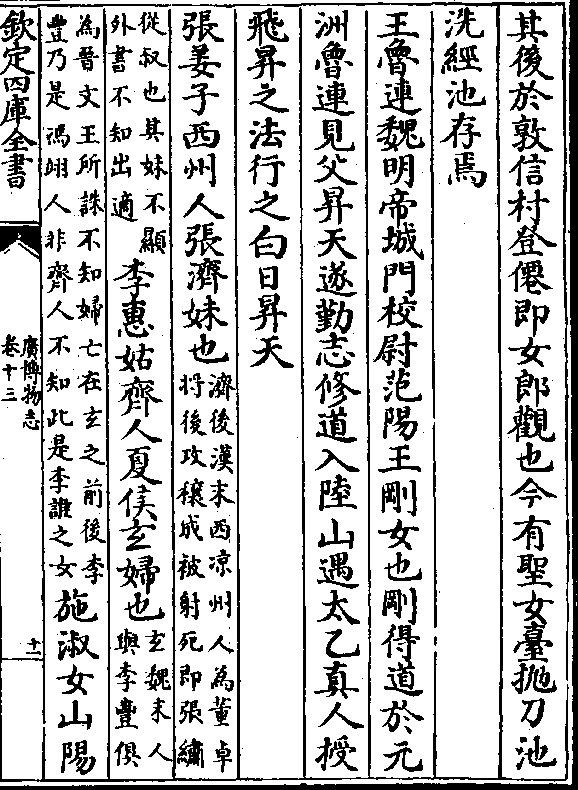 其後於敦信村登僊即女郎觀也今有聖女臺拋刀池
洗經池存焉
王魯連魏明帝城門校尉范陽王剛女也剛得道於元
洲魯連見父昇天遂勤志修道入陸山遇太乙真人授
飛昇之法行之白日昇天
張姜子西州人張濟妹也濟後漢末西凉州人為董卓將後攻穰成被射死即張繡
從叔也其妹不顯外書不知出適李惠姑齊人夏侯玄婦也玄魏末人與李豐俱
為晉文王所誅不知婦亡在玄之前後李豐乃是馮翊人非齊人不知此是李誰之女施淑女山陽
欽定四庫全書
廣博物志
卷十三
十一